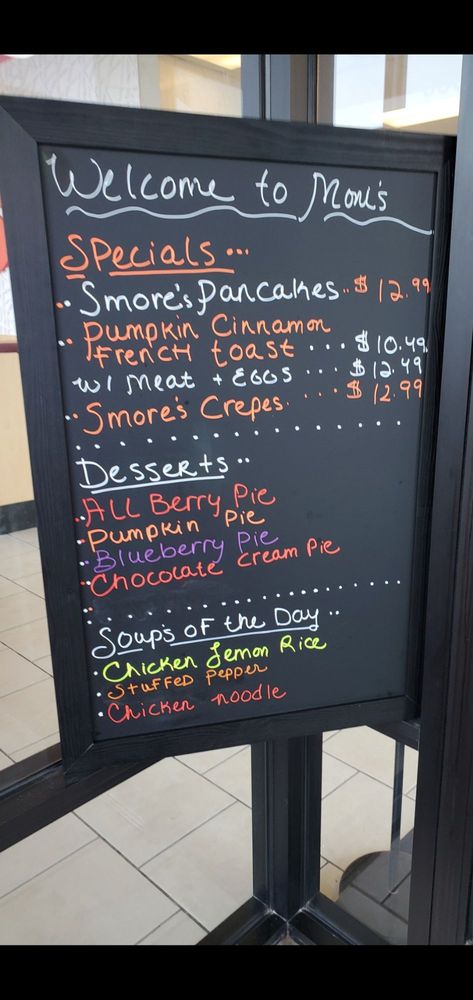 Welcome to Moni's
Specials ...
.. Smore's Pancakes .. $ 12.99
.. Pumpkin Cinnamon
French toast ... $10.49
w/ Meat + Eggs ... $12.49
.. Smore's Crepes .... $ 12.99
Desserts ..
.. ALL Berry Pie
. Pumpkin Pie
.. Blueberry Pie
.. Chocolate Cream Pie
Soup's of the Day ..
. Chicken Lemon Rice
. Stuffed Pepper
. Chicken noodle